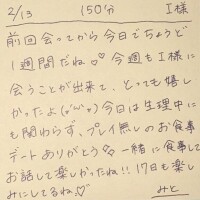 2/13 150分 I様
前回会ってから今日でちょうど
1週間だね♡今週もI様に
会うことが出来て、とっても嬉し
かったよ(〃'▽'〃)今日は生理中に
も関わらず、プレイ無しのお食事
デートありがとう♡一緒に食事して
お話して楽しかったね!!17日も楽し
みにしてるね♡
みと